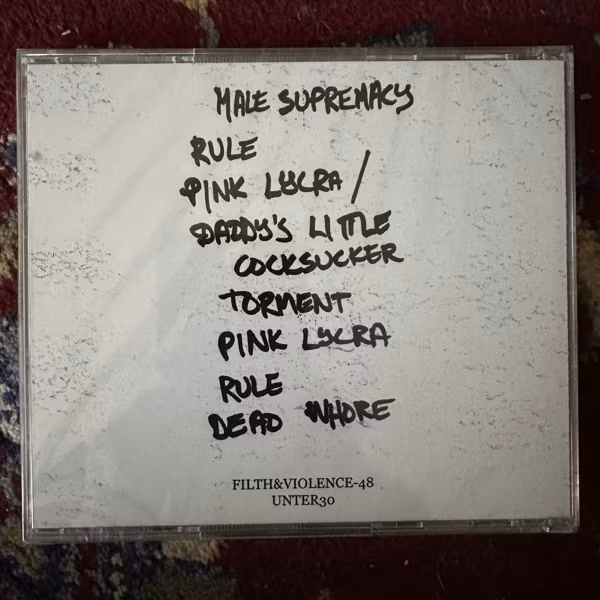 MALE SUPREMACY
RULE
PINK LYCRA /
DADDY'S LITTLE
COCKSUCKER
TORMENT
PINK LYCRA
RULE
DEAD WHORE
FILTH&VIOLENCE-48
UNTER30